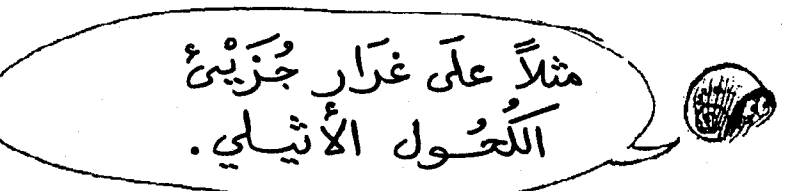 مثلاً علَى غرَار جُزَيْئ
الكُحُول الأثيلي.